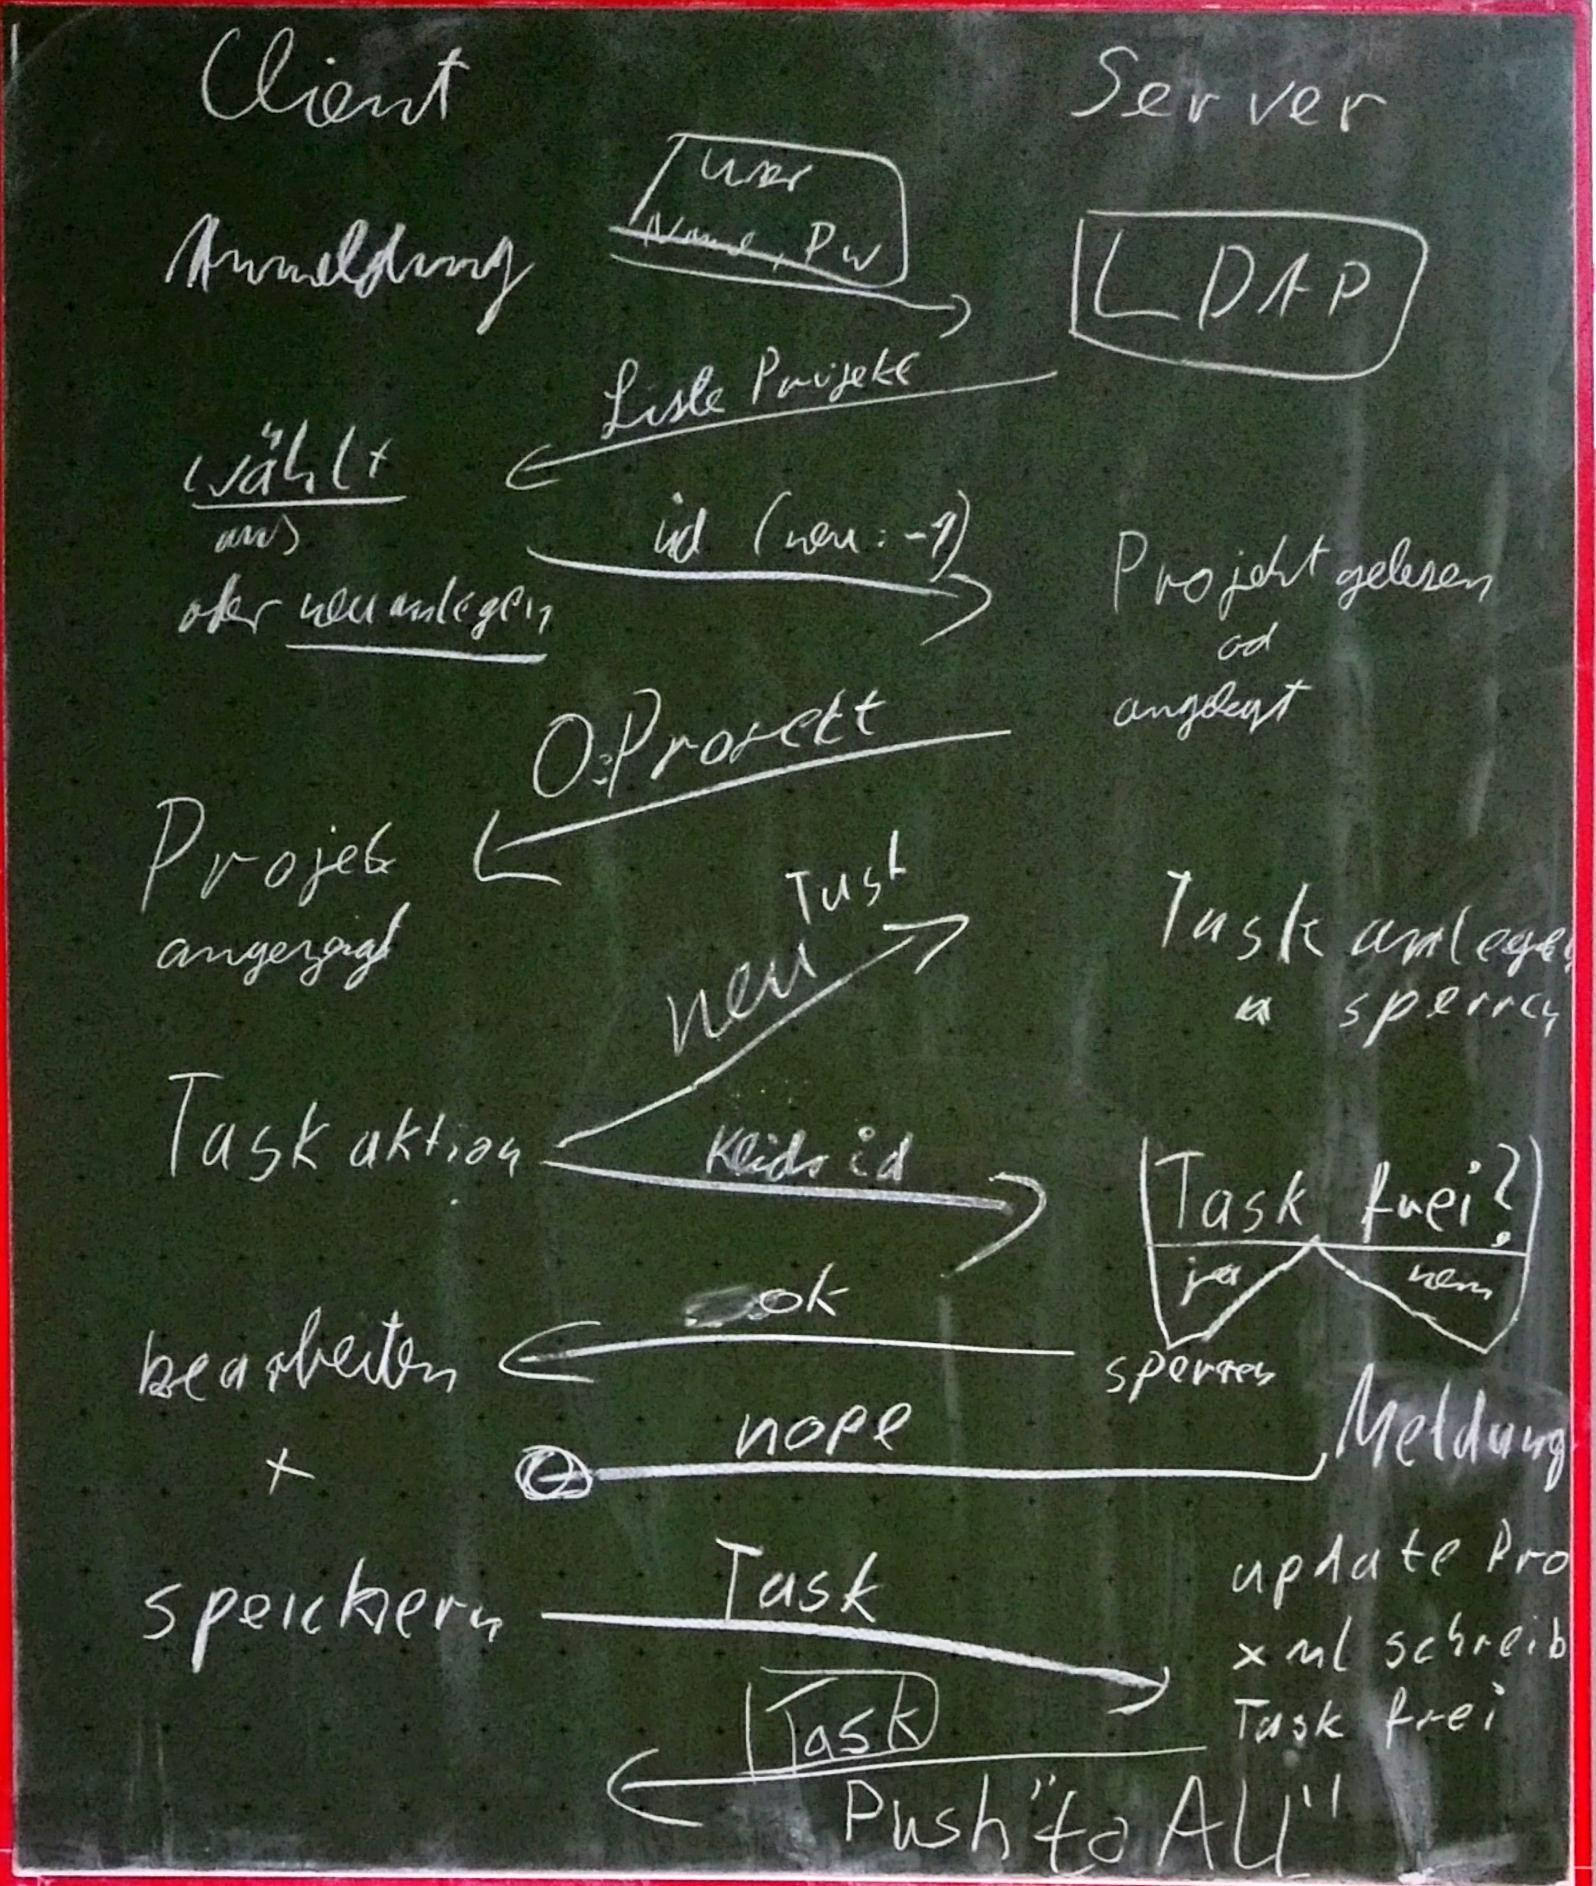 Client
Server
User
Name, Pw
Anmeldung
LDAP
Liste Projekte
wählt
aus
id (neu: -1)
oder neu anlegen
Projekt gelesen
od
angelegt
O:Projekt
Projekt
angezeigt
neu Task
Task anlegen
sperren
Task aktion
id
Task frei?
ja
nein
ok
bearbeiten
sperren
nope
Meldung
+
speichern
Task
update Pro
xml schreib
Task frei
Task
Push "to All"